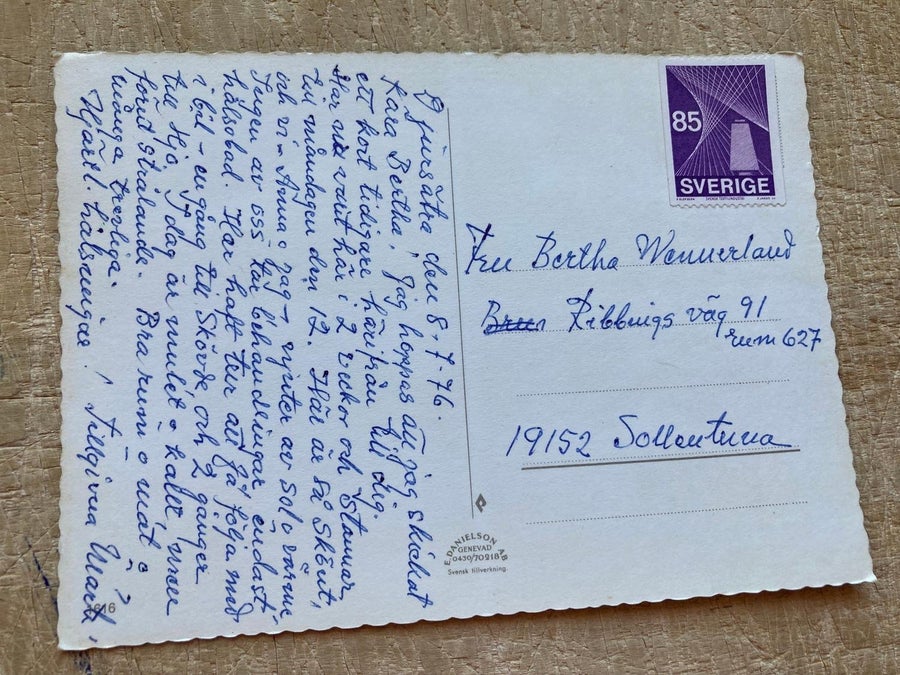 Djursätra, den 8,-7-76.
Kära Bertha, Jag hoppas att jag skickat
ett kort tidigare härifrån till dig.
Har nu varit här i 2 veckor och stannar
till måndagen den 12. Här är så skönt,
och vi - Anna o jag - njuter av sol o värme.
Ingen av oss tar behandlingar, endast
hälsobad. Har haft tur att få följa med
i bil - en gång till Skövde, och 2 gånger
till Hjo. I dag är mulet o kallt, men
förut strålande. Bra rum o mat o
många trevliga
Hjärtl. hälsningar! Tillgivna
1616
85
SVERIGE
Fru Bertha Wennerland
Ribbings väg 91
rum 627
19152 Sollentuna
E. DANIELSON AB
GENEVAD
0430/70218
Svensk tillverkning.